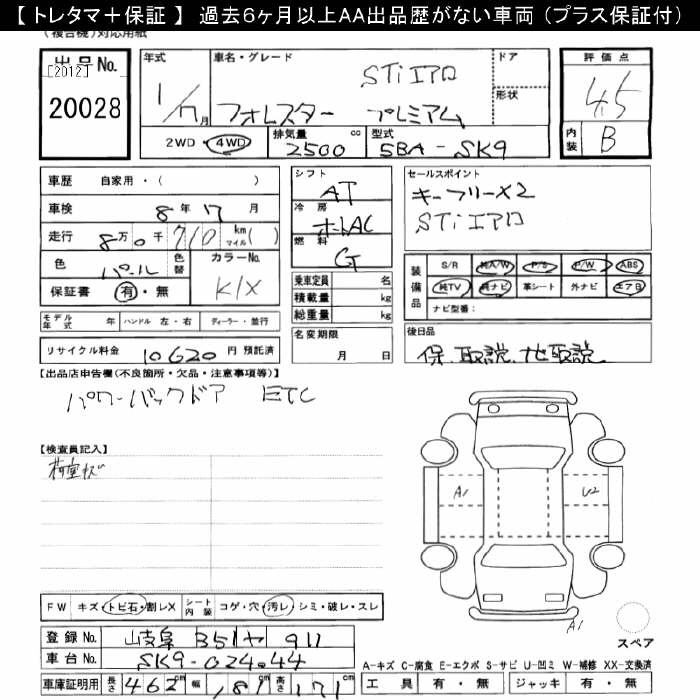 【 トレタマ＋保証 】 過去６ヶ月以上AA出品歴がない車両（プラス保証付）
(複合機)対応用紙
出品No.
[2012]
20028
年式
月
車名・グレード
STiエアロ
フォレスター プレミアム
ドア
形状
評価点
4.5
内装 B
2WD ・ 4WD
排気量 2500 cc
型式 5BA-SK9
車歴 自家用・( )
車検 8年17月
走行 8万0千710 km マイル( )
色 パール 色替
カラーNo. K1X
保証書 有・無
シフト AT
冷房 オートAC
燃料 G
乗車定員 名
積載量 kg
総重量 kg
名変期限 月 日
セールスポイント
キーフリーX2
STiエアロ
装備品 S/R 純A/W P/S P/W ABS
純TV 純ナビ 革シート 外ナビ エアB
ナビ型番:
モデル年式 年 ハンドル 左・右 ディーラー・並行
リサイクル料金 10620 円 預託済
後日品
保、取説、地取説
【出品店申告欄(不良箇所・欠品・注意事項等)】
パワーバックドア ETC
【検査員記入】
荷室キズ
A1
U2
A1
スペア
FW キズ・トビ石・割レX シート内装 コゲ・穴・汚レ・シミ・破レ・スレ
登録No. 岐阜 351ヤ 911
車台No. SK9-024044
A-キズ C-腐食 E-エクボ S-サビ U-凹ミ W-補修 XX-交換済
車庫証明用 長さ 462cm 幅 181cm 高さ 171cm
工具 有・無 ジャッキ 有・無